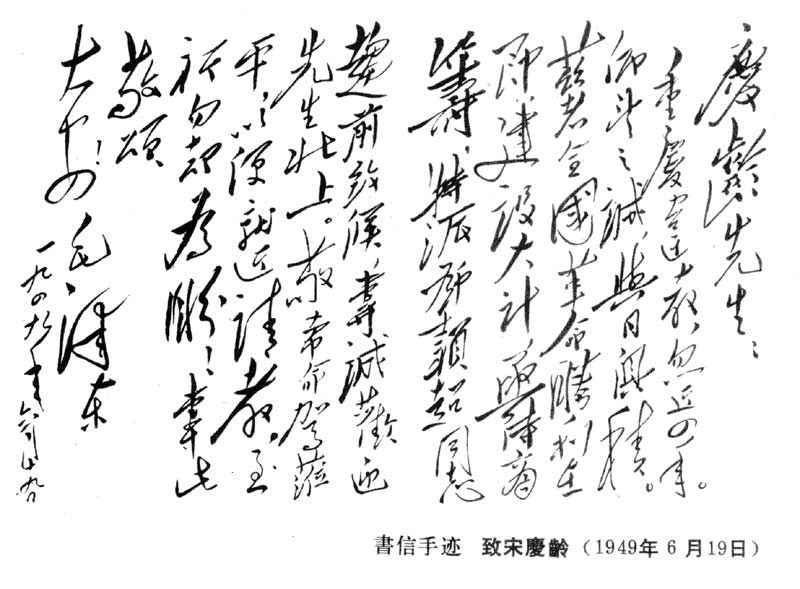 慶齡先生:
重慶違教,忽近四年。
仰望之誠,與日俱積。
茲者全國革命勝利在
即,建設大計,亟待商
籌,特派鄧穎超同志
趨前致候,專誠歡迎
先生北上。敬希命駕蒞
平,以便就近請教,至
祈勿却為盼!專此
敬頌
大安!
毛澤東
一九四九年六月十九日
書信手迹 致宋慶齡(1949年6月19日)